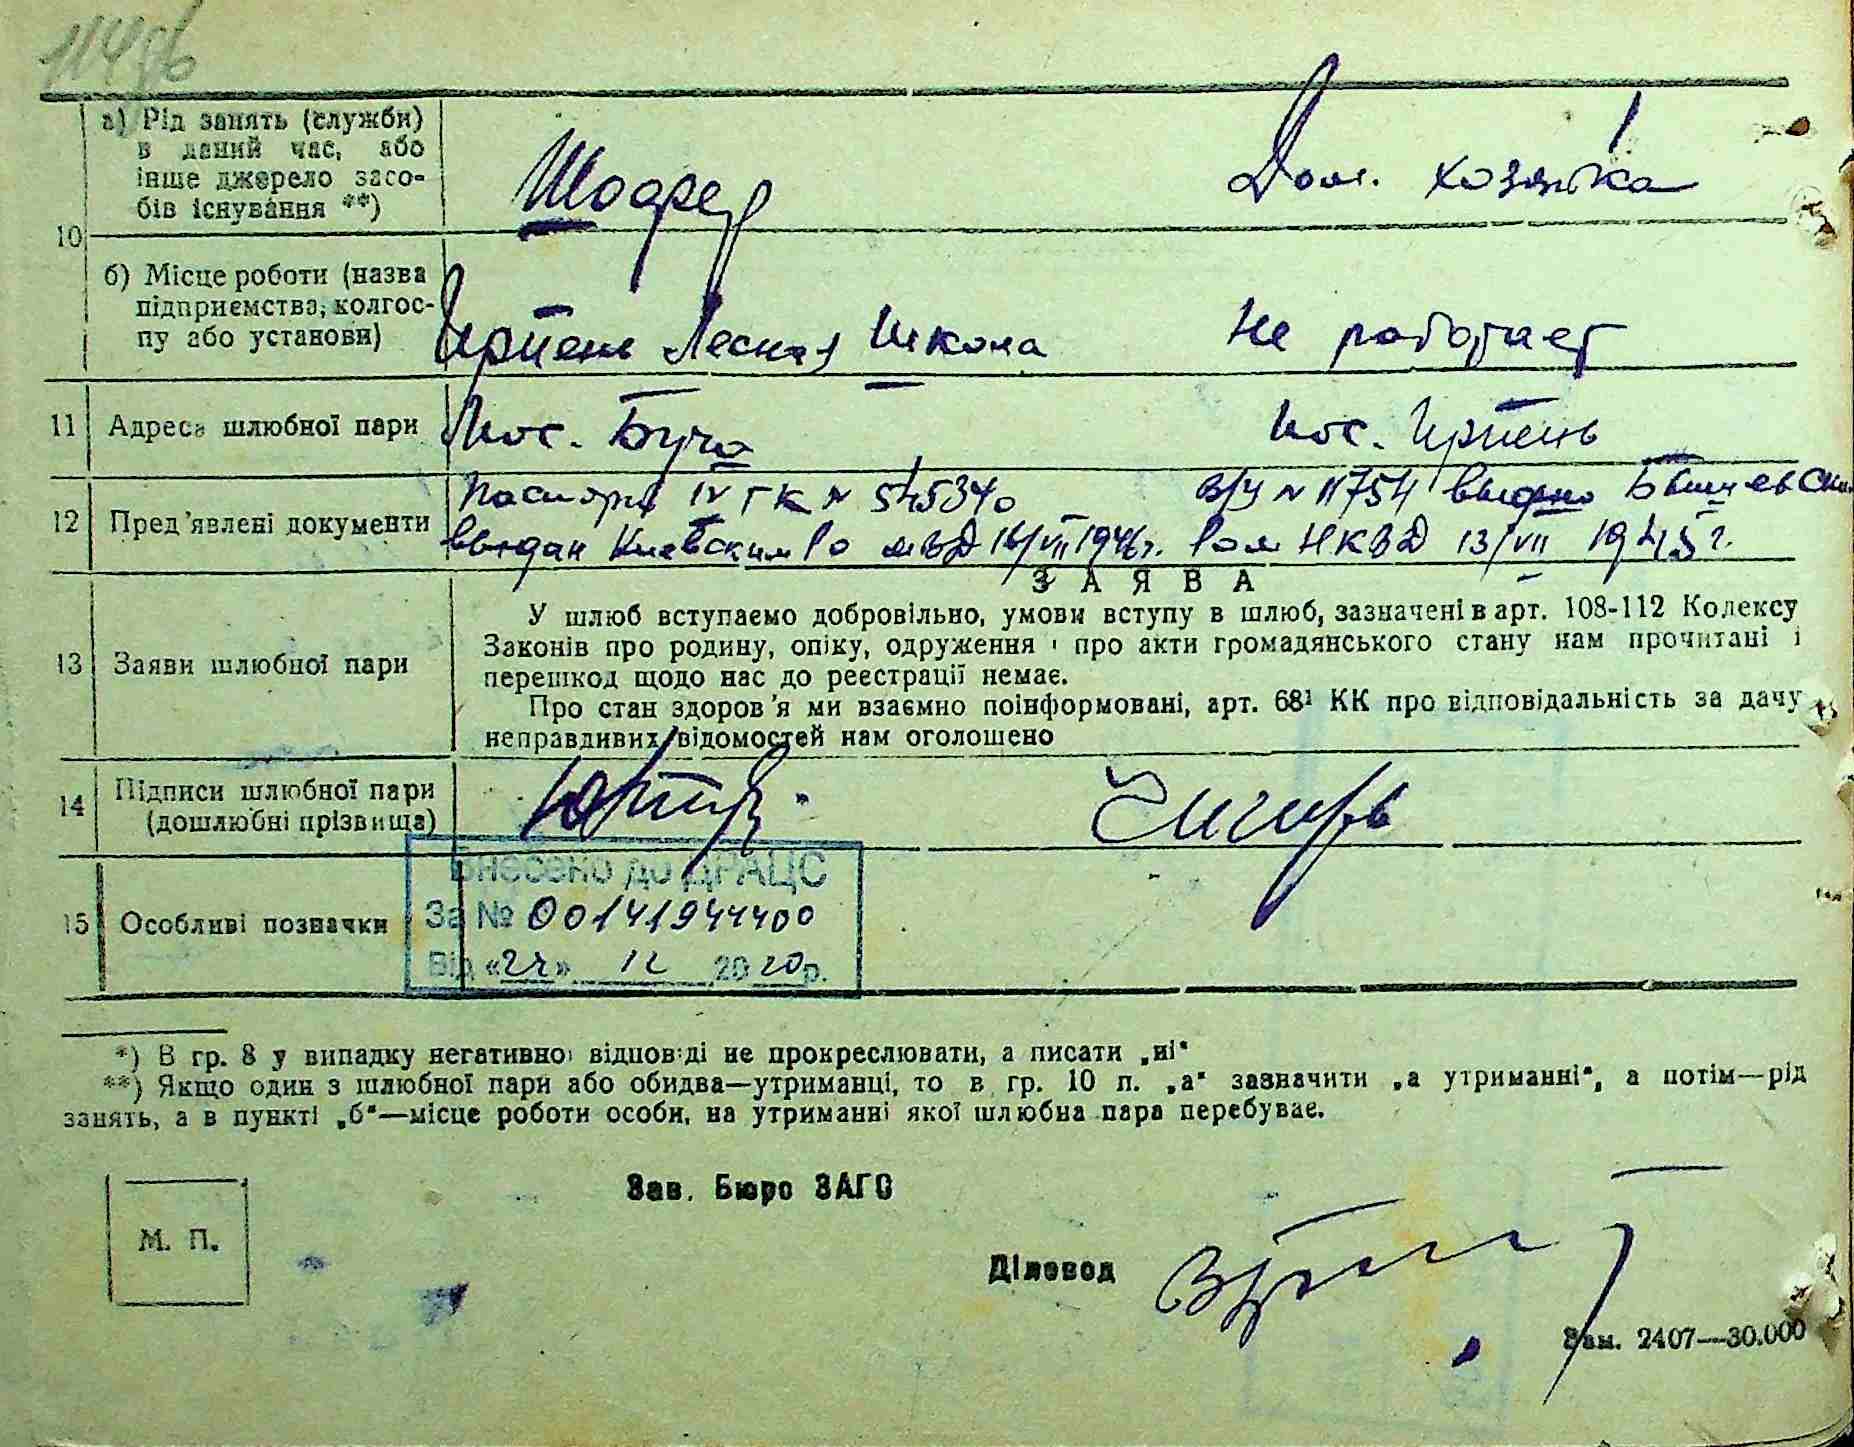 а) Рід занять (служби)
в даний час, або
інше джерело засо-
бів існування **)
Шофер
Дом. хозяйка
10
б) Місце роботи (назва
підприємства, колгос-
пу або установи)
Ирпень Лесная Школа
Не работает
11 Адреса шлюбної пари
Пос. Буча
пос. Ирпень
12 Пред'явлені документи
Паспорт IV ГК № 545340
выдан Киевским Ро МВД 16/VII 1946г.
в/у № 11754 выдано
Ром НКВД 13/VII 1945г.
ЗАЯВА
13 Заяви шлюбної пари
У шлюб вступаємо добровільно, умови вступу в шлюб, зазначені в арт. 108-112 Кодексу
Законів про родину, опіку, одруження і про акти громадянського стану нам прочитані і
перешкод щодо нас до реєстрації немає.
Про стан здоров'я ми взаємно поінформовані, арт. 68¹ КК про відповідальність за дачу
неправдивих відомостей нам оголошено
14 Підписи шлюбної пари
(дошлюбні прізвища)
Чигирь
15 Особливі позначки
Внесено до ДРАЦС
За № 00141944400
Від «24» 12 2020р.
*) В гр. 8 у випадку негативної відповіді не прокреслювати, а писати „ні"
**) Якщо один з шлюбної пари або обидва—утриманці, то в гр. 10 п. „а" зазначити „а утриманні", а потім—рід
занять, а в пункті „б"—місце роботи особи, на утриманні якої шлюбна пара перебуває.
Зав. Бюро ЗАГС
М. П.
Діловод
Зам. 2407—30.000